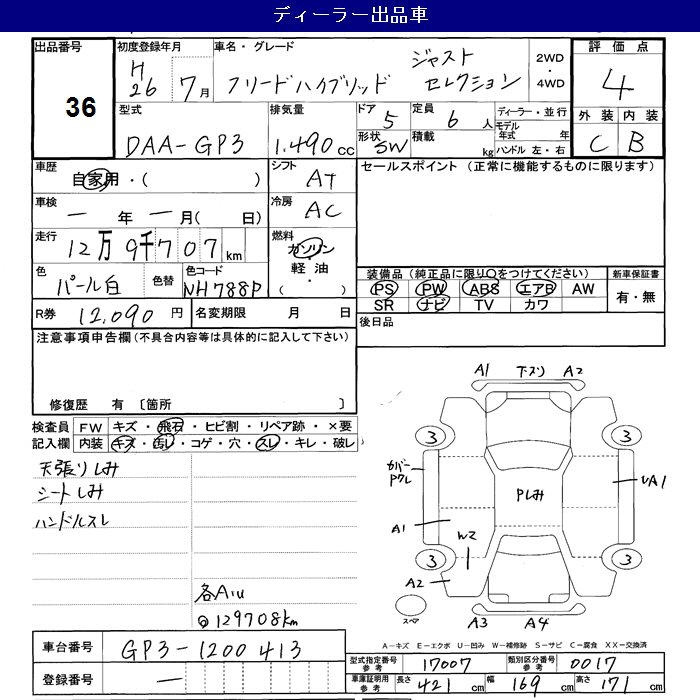 ディーラー出品車
出品番号 36
初度登録年月 H26 7月
車名・グレード フリードハイブリッド ジャストセレクション
2WD・4WD
評価点 4
外装 C 内装 B
型式 DAA-GP3
排気量 1.490cc
ドア 5
定員 6人
形状 SW
積載 kg
ディーラー・並行
モデル年式 年
ハンドル 左・右
車歴 自家用・( )
シフト AT
セールスポイント (正常に機能するものに限ります)
車検 ー年ー月( 日)
冷房 AC
走行 12万9千707km
燃料 ガソリン・軽油・( )
色 パール白
色替
色コード NH788P
装備品(純正品に限り○をつけてください)
PS PW ABS エアB AW
SR ナビ TV カワ
新車保証書 有・無
R券 12,090円
名変期限 月 日
後日品
注意事項申告欄(不具合内容等は具体的に記入して下さい)
修復歴 有 〔箇所 〕
検査員記入欄
FW キズ・飛石・ヒビ割・リペア跡・×要
内装 キズ・汚レ・コゲ・穴・スレ・キレ・破レ
天張りしみ
シートしみ
ハンドルスレ
各A、U
◎129708km
A1 下ズリ A2
3 3
カバーPクレ
Pしみ
UA1
A1
W2
3 3
A2
スペア
A3 A4
A-キズ E-エクボ U-凹み W-補修跡 S-サビ C-腐食 XX-交換済
車台番号 GP3-1200413
登録番号 ー
型式指定番号参考 17007
類別区分番号参考 0017
車庫証明用参考 長さ 421cm 幅 169cm 高さ 171cm